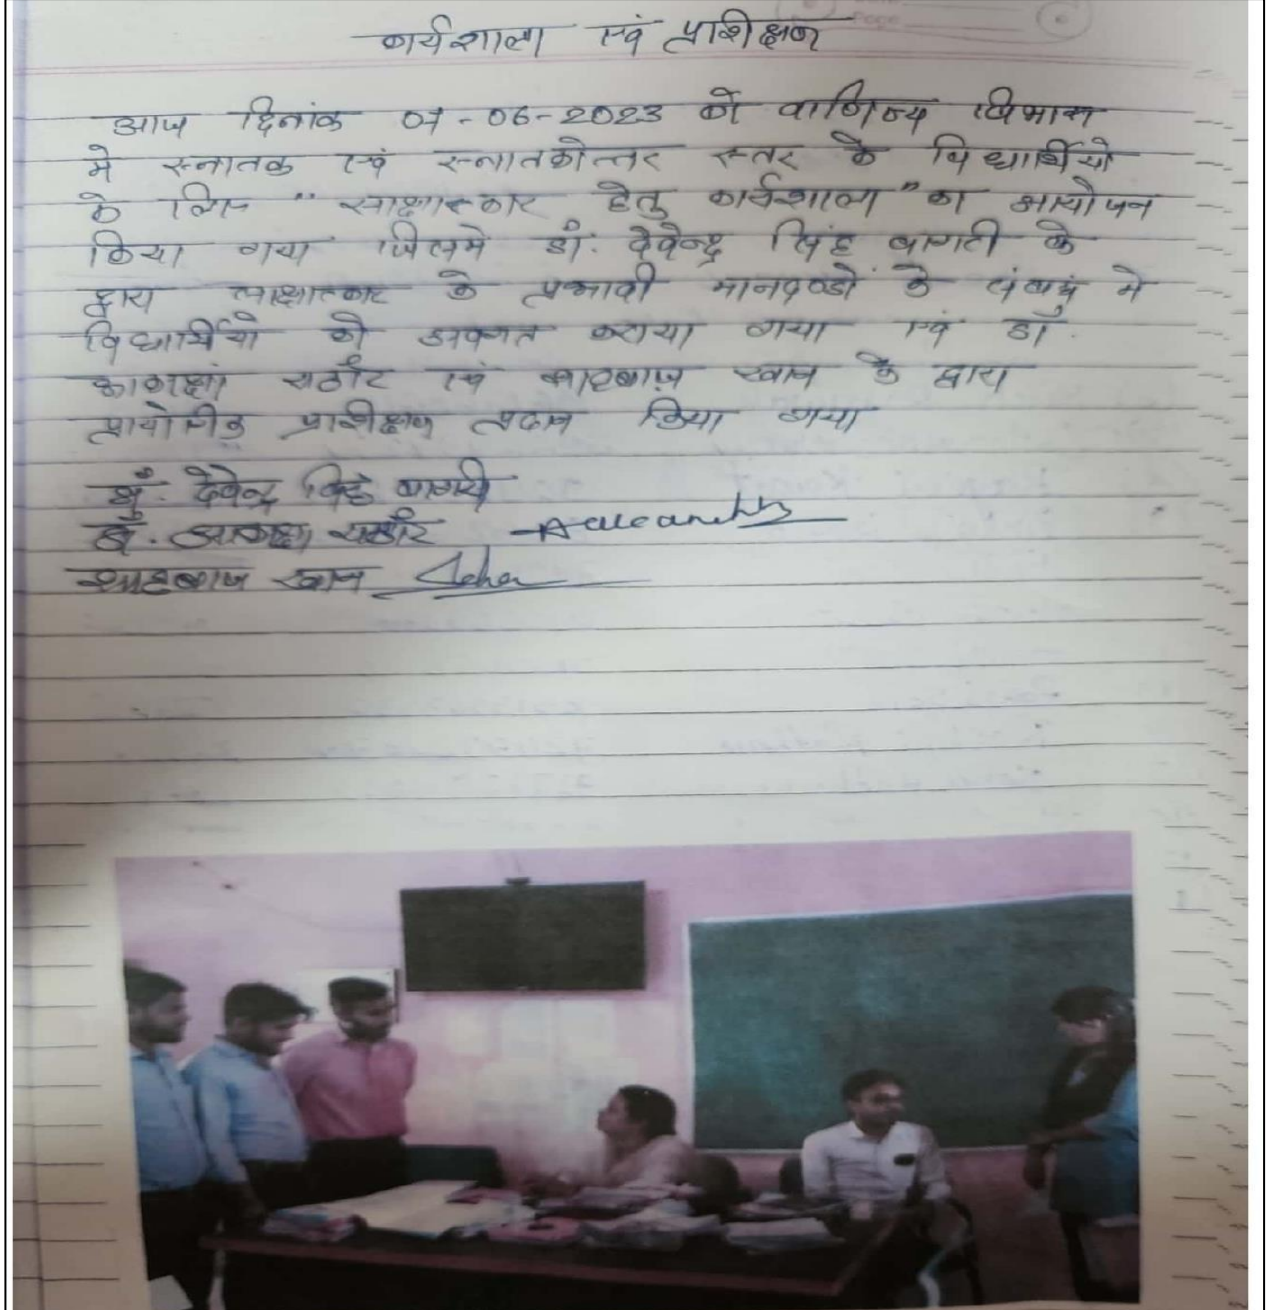 कार्यशाला एवं प्रशिक्षण
आज दिनांक 07-06-2023 को वाणिज्य विभाग
मे स्नातक एवं स्नातकोत्तर स्तर के विधार्थियो
के लिए "साक्षात्कार हेतु कार्यशाला" का आयोजन
किया गया जिसमे डॉ. देवेन्द्र सिंह बागरी के
द्वारा साक्षात्कार के प्रभावी मानदण्डों के संबंध मे
विधार्थियो को अवगत कराया गया एवं डॉ.
आकांक्षा राठौर एवं शाहबाज़ खान के द्वारा
प्रायोगिक प्रशिक्षण प्रदान किया गया
डॉ. देवेन्द्र सिंह बागरी
डॉ. आकांक्षा राठौर
शाहबाज खान